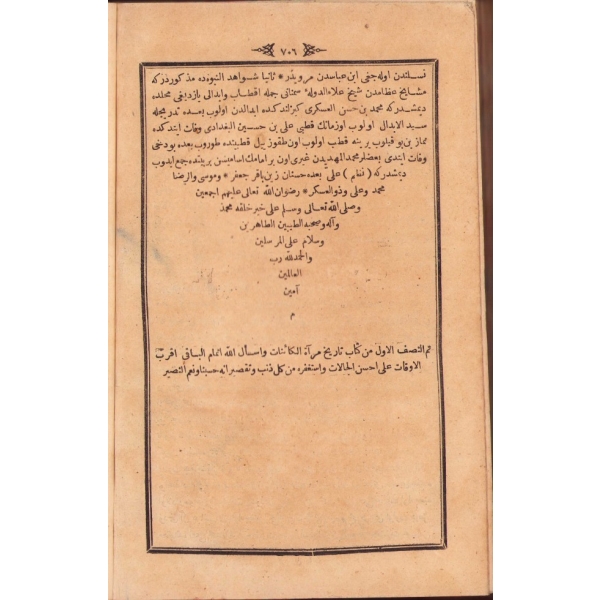 ٧٠٦
نسلندن اوله جغی ابن عباسدن مرویدر * ثانیا شواهد النبوه ده مذکوردرکه
مشایخ عظامدن شیخ علاء الدولهٔ سمنانی جمله اقطاب وابدالی یازدیغی محلده
دیمشدرکه محمد بن حسن العسکری کیزلندکده ابدالدن اولوب بعده تدریجله
سید الابدال اولوب اوزمانك قطبی علی بن حسین البغدادی وفات ایتدکده
نمازین بو قیلوب یرینه قطب اولوب اون طقوز ییل قطبیتده طوروب بعده بودخی
وفات ایتدی بعضلر محمد المهدیدن غیری اون بر امامك اسامیسن بر بیتده جمع ایدوب
دیمشدرکه ( نظم ) علی بعده حسنان زین باقر جعفر * وموسی والرضا
محمد وعلی وذوالعسکر * رضوان الله تعالی علیهم اجمعین
وصلی الله تعالی وسلم علی خیر خلقه محمد
وآله وصحبه الطیبین الطاهرین
وسلام علی المرسلین
والحمد لله رب
العالمین
آمین
م
تم النصف الاول من کتاب تاریخ مرآة الکائنات واسأل الله اتمام الباقی اقرب
الاوقات علی احسن الحالات واستغفره من کل ذنب وتقصیر انه حسبنا ونعم النصیر